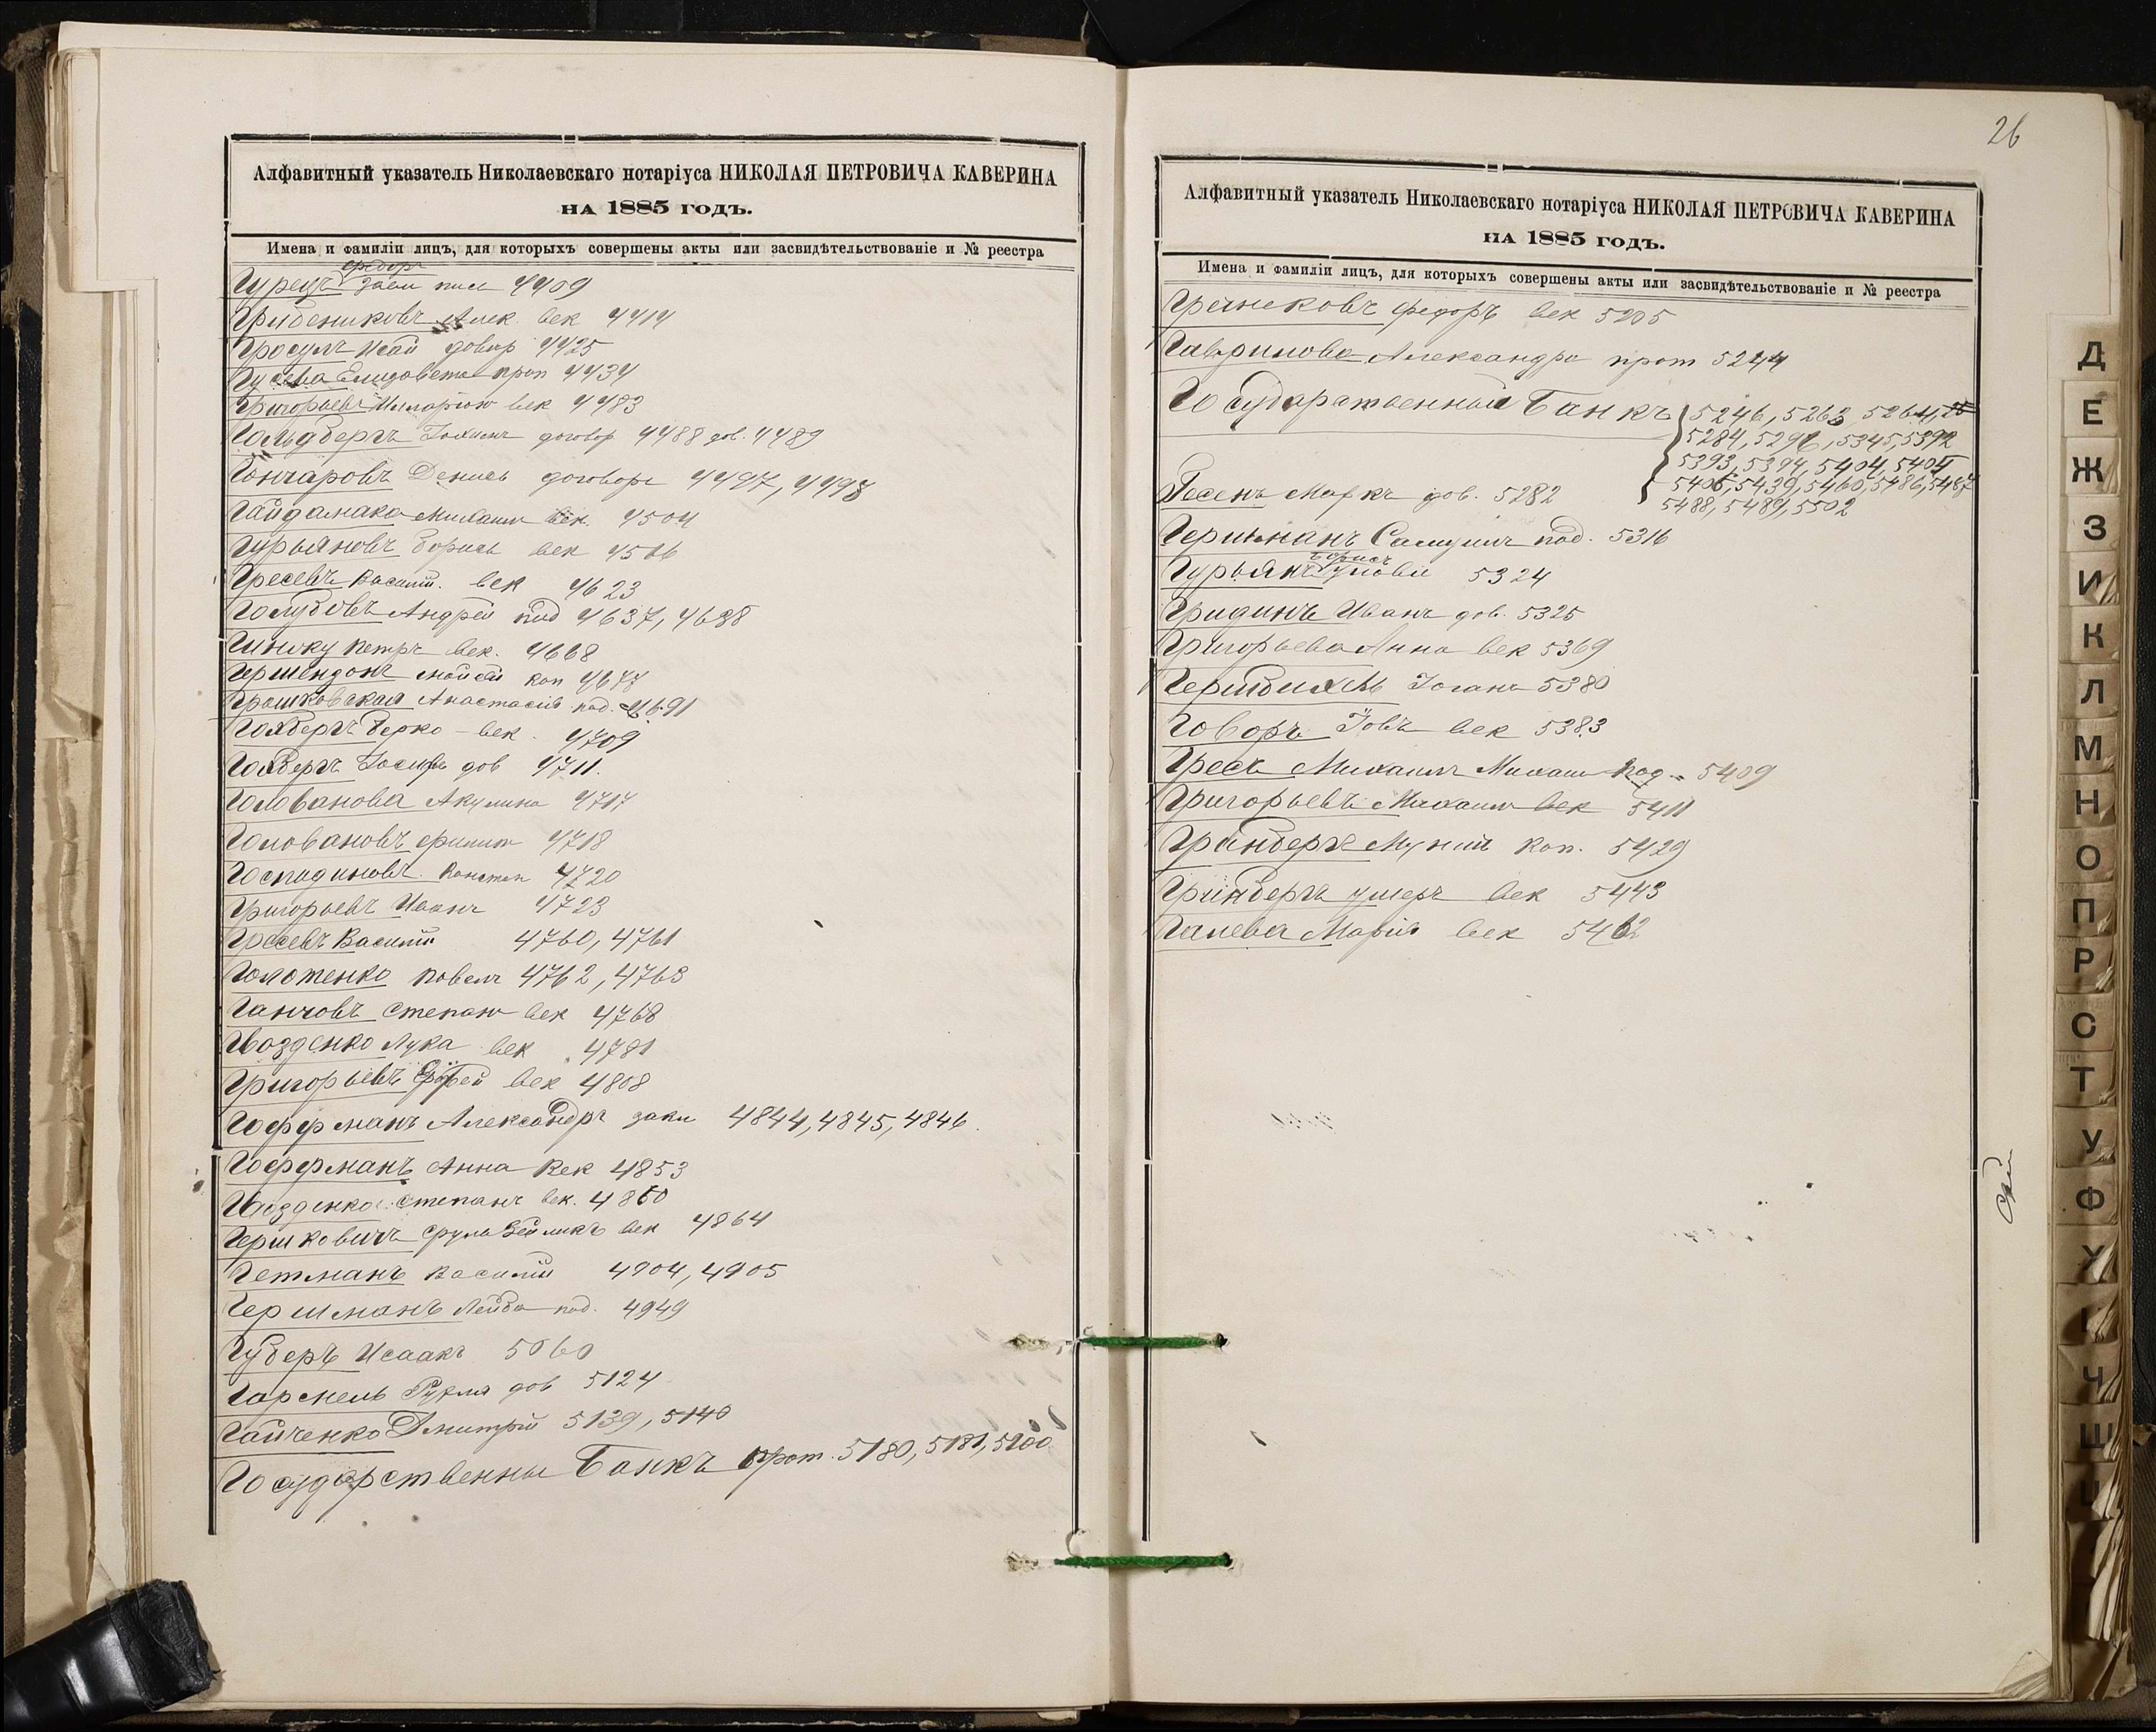 Алфавитный указатель Николаевскаго нотаріуса НИКОЛАЯ ПЕТРОВИЧА КАВЕРИНА
НА 1885 ГОДЪ.
Имена и фамиліи лицъ, для которыхъ совершены акты или засвидѣтельствованіе и № реестра
Федоръ
Гурецъ 4409
Грибениковъ Алек. век 4414
Гросулъ Исай довѣр 4425
Гусева Елизавета 4434
Григорьевъ Илларіон век 4483
Гольдбергъ Іохимъ договор 4488 дов. 4489
Гончаровъ Денисъ договоръ 4497, 4498
Гайдамака Михаилъ век. 4504
Гурьяновъ Борисъ век 4506
Гресевъ Василій. век 4623
Голубовъ Андрей под 4637, 4638
Гиноку Петръ век. 4668
Гершендонъ Мойсей коп 4677
Грошковская Анастасія под. 4691
Голбергъ Берко - век. 4709
Голбергъ Іосифъ дов 4711.
Голованова Акулина 4717
Головановъ Филип 4718
Господиновъ Констан 4720
Григорьевъ Иванъ 4723
Гресевъ Василій 4760, 4761
Голотенко Павелъ 4762, 4763
Ганчовъ Степанъ век 4768
Гвозденко Лука век 4781
Григорьевъ век 4808
Гоффманъ Александръ 4844, 4845, 4846.
Гофферманъ Анна век 4853
Гвозденко Степанъ век. 4860
Гершковичъ Сруль Зейликъ век 4864
Гетманъ Василій 4904, 4905
Гершманъ Лейба под. 4949
Губеръ Исаакъ 5060
Гармель Рухля дов 5124
Гайченко Дмитрій 5139, 5140
Государственны Банкъ прот. 5180, 5181, 5200
26
Алфавитный указатель Николаевскаго нотаріуса НИКОЛАЯ ПЕТРОВИЧА КАВЕРИНА
НА 1885 ГОДЪ.
Имена и фамиліи лицъ, для которыхъ совершены акты или засвидѣтельствованіе и № реестра
Гранековъ Федоръ век 5205
Гавринова Александра прот 5244
Государственный Банкъ 5246, 5263, 5264,
5284, 5296, 5345, 5392
5393, 5394, 5404, 5405
5406, 5439, 5460, 5486, 5487
5488, 5489, 5502
Гесенъ Маркъ дов. 5282
Гершманъ Самуилъ под. 5316
Борисъ
Гурьянъ 5324
Гридинъ Иванъ дов. 5325
Григорьева Анна век 5369
Іоганъ 5380
Говоръ Іовъ век 5383
Гресь Михаилъ Михаи под. 5409
Григорьевъ Михаилъ век 5411
Гринбергъ Муний коп. 5429
Гринбергъ Ушеръ век 5443
Ганева Марія век 5462
Д
Е
Ж
З
И
К
Л
М
Н
О
П
Р
С
Т
У
Ф
Х
Ч
Ш